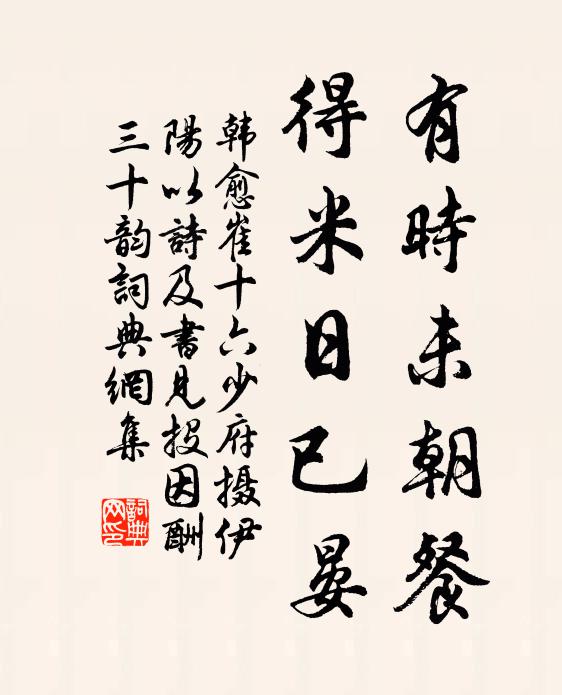 有時未朝餐
得米日已晏
韩愈崔十六少府摄伊
陽以詩及書見投因酬
三十韵詞典網集
詞典网印